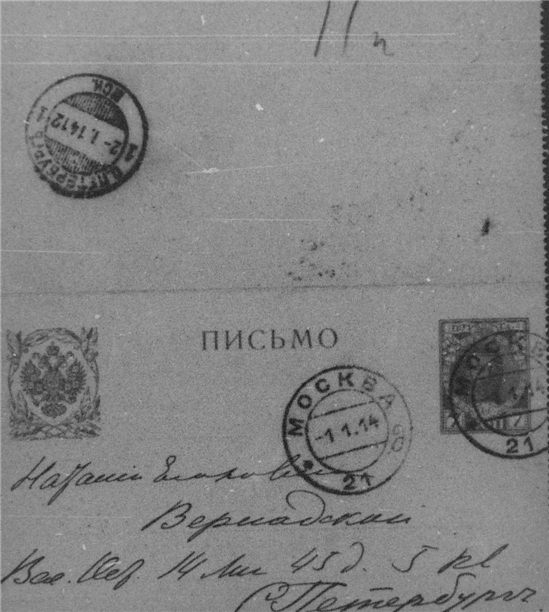 11 п
С.ПЕТЕРБУРГЪ 2-1.14 12 1 ЭСК.
ПИСЬМО
МОСКВА 60 -1 1.14 21
МОСКВА 1.14 21
Наталии Егоровне
Вернадской
Вас. Остр. 14 лин 45 д. 5 кв
С Петербургъ